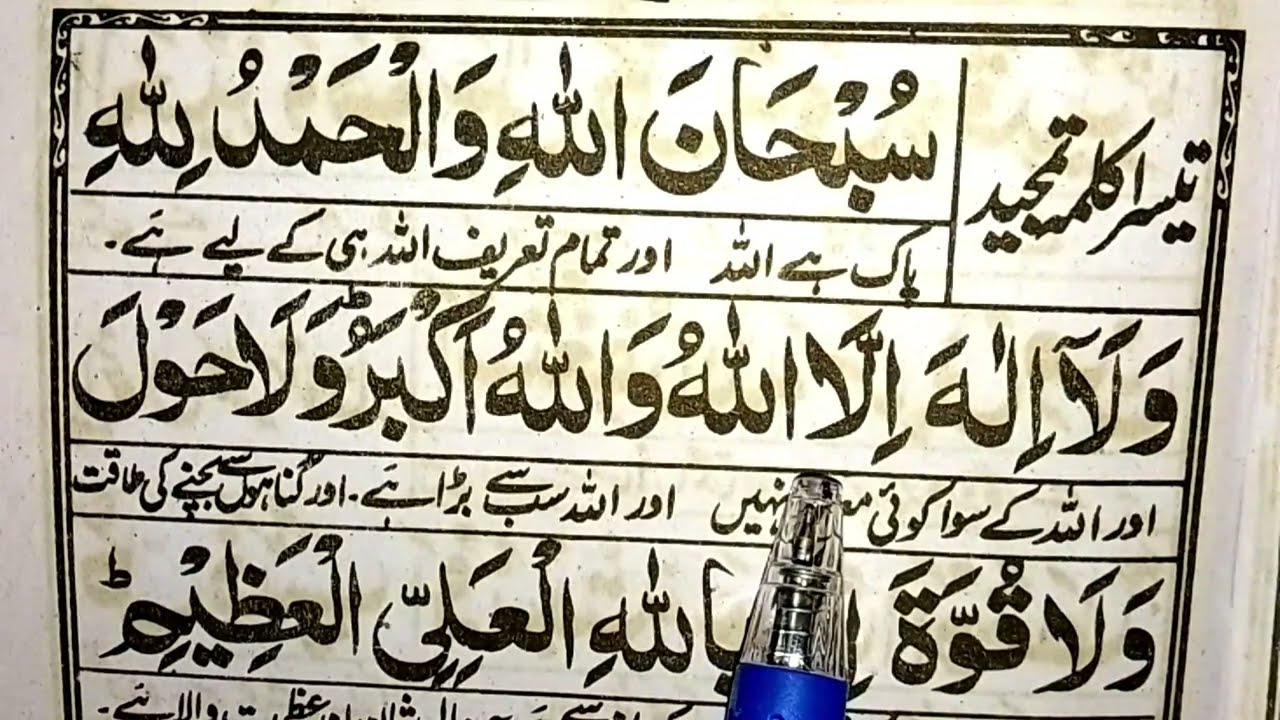 تیسرا کلمہ تمجید
سُبْحَانَ اللّٰهِ وَالْحَمْدُ لِلّٰهِ
پاک ہے اللہ اور تمام تعریف اللہ ہی کے لیے ہَے۔
وَلَآ اِلٰهَ اِلَّا اللّٰهُ وَاللّٰهُ اَكْبَرُؕ وَلَا حَوْلَ
اور اللہ کے سوا کوئی نہیں اور اللہ سب سے بڑا ہَے۔ اور گناہوں سے بچنے کی طاقت
وَلَا قُوَّةَ بِاللّٰهِ الْعَلِیِّ الْعَظِیْمِؕ
عظمت والا ہَے۔